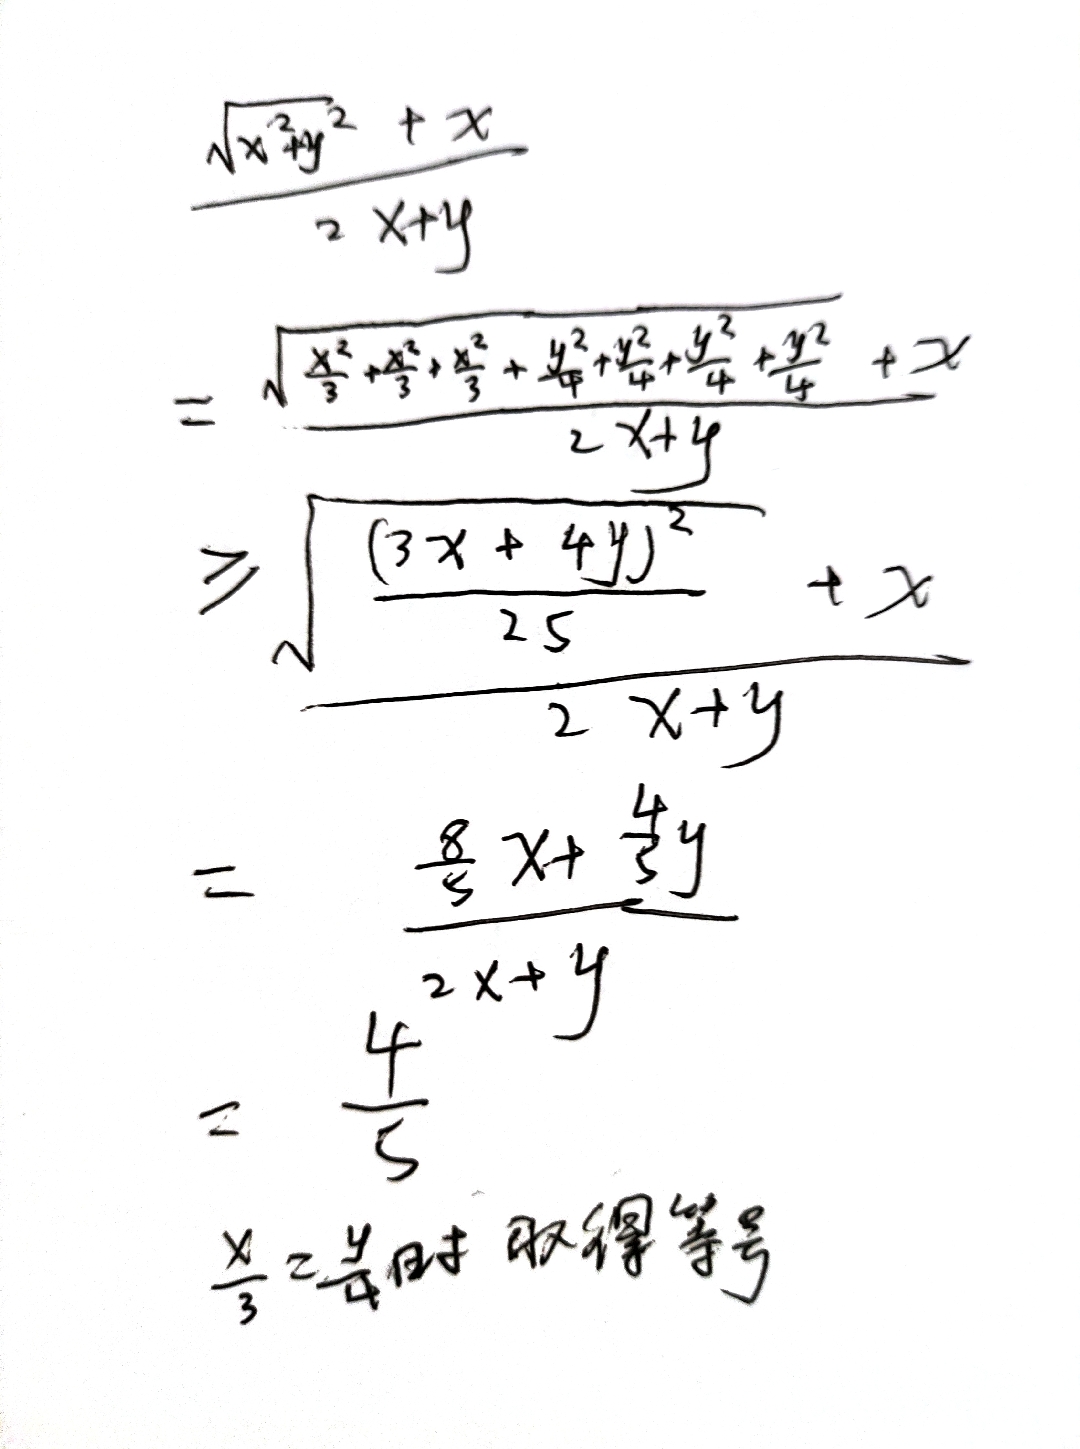 √(x²+y²) + x
2x+y
= √(x²/3 + x²/3 + x²/3 + y²/4 + y²/4 + y²/4 + y²/4) + x
2x+y
≥ √((3x + 4y)²/25) + x
2x+y
= 8/5 x + 4/5 y
2x+y
= 4/5
x/3 = y/4 时 取得等号